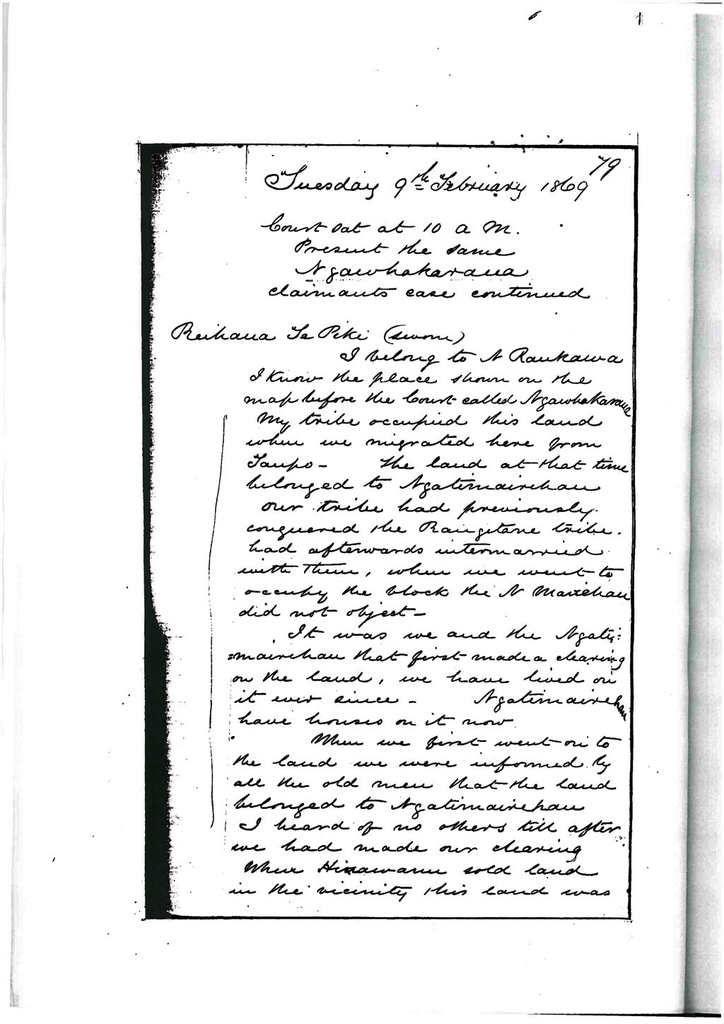 79
Tuesday 9th February 1869
Court Sat at 10 a M.
Present the same
Ngawhakaraua
claimants case continued
Reihana Te Piki (sworn)
I belong to N Raukawa
I know the place shown on the
map before the Court called Ngawhakaraua
My tribe occupied this land
when we migrated here from
Taupo - the land at that time
belonged to Ngatimairehau
our tribe had previously
conquered the Rangitane tribe.
had afterwards intermarried
with them, when we went to
occupy the block the N Mairehau
did not object -
It was we and the Ngati=
=mairehau that first made a clearing
on the land, we have lived on
it ever since - Ngatimairehau
have houses on it now
When we first went on to
the land we were informed by
all the old men that the land
belonged to Ngatimairehau
I heard of no others till after
we had made our clearing
When sold land
in the vicinity this land was